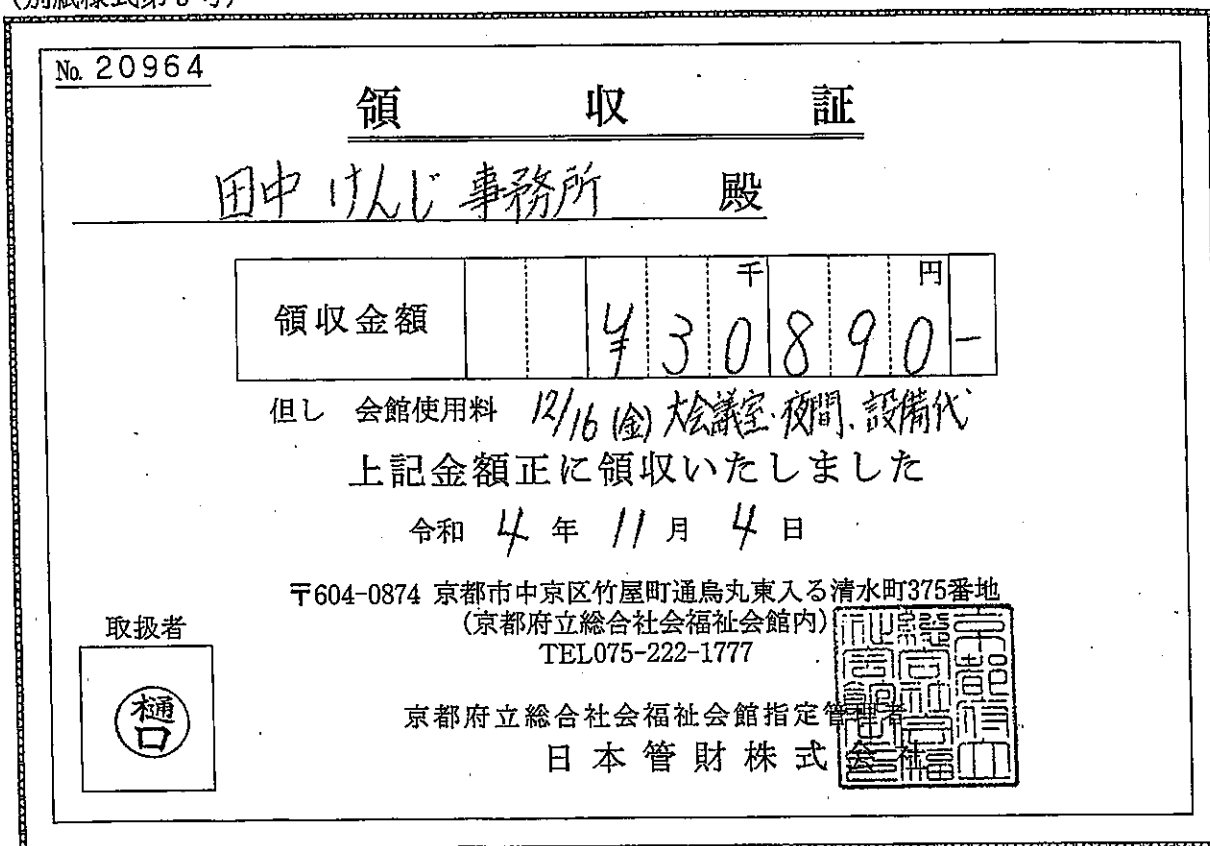 No. 20964
領収証
田中けんじ事務所 殿
千 円
領収金額 ¥30890-
但し 会館使用料 12/16(金)大会議室・夜間、設備代
上記金額正に領収いたしました
令和 4 年 11 月 4 日
〒604-0874 京都市中京区竹屋町通烏丸東入る清水町375番地
(京都府立総合社会福祉会館内)
TEL075-222-1777
取扱者
樋口
京都府立総合社会福祉会館指定管理者
日本管財株式会社